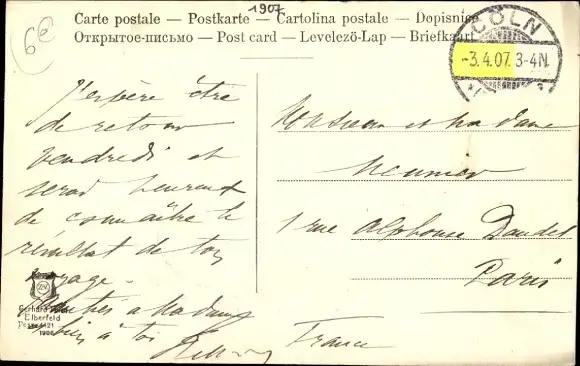 1907
Carte postale — Postkarte — Cartolina postale — Dopisnice
Открытое-письмо — Post card — Levelező-Lap — Briefkaart
6€
CÖLN
-3.4.07. 3-4N.
J'espère être
de retour
vendredi et
serai heureux
de connaître le
résultat de ton
voyage.
à Madame
bien à toi
Monsieur et Madame
Meunier
1 rue Alphonse Daudet
Paris
France
Gerhard
Elberfeld